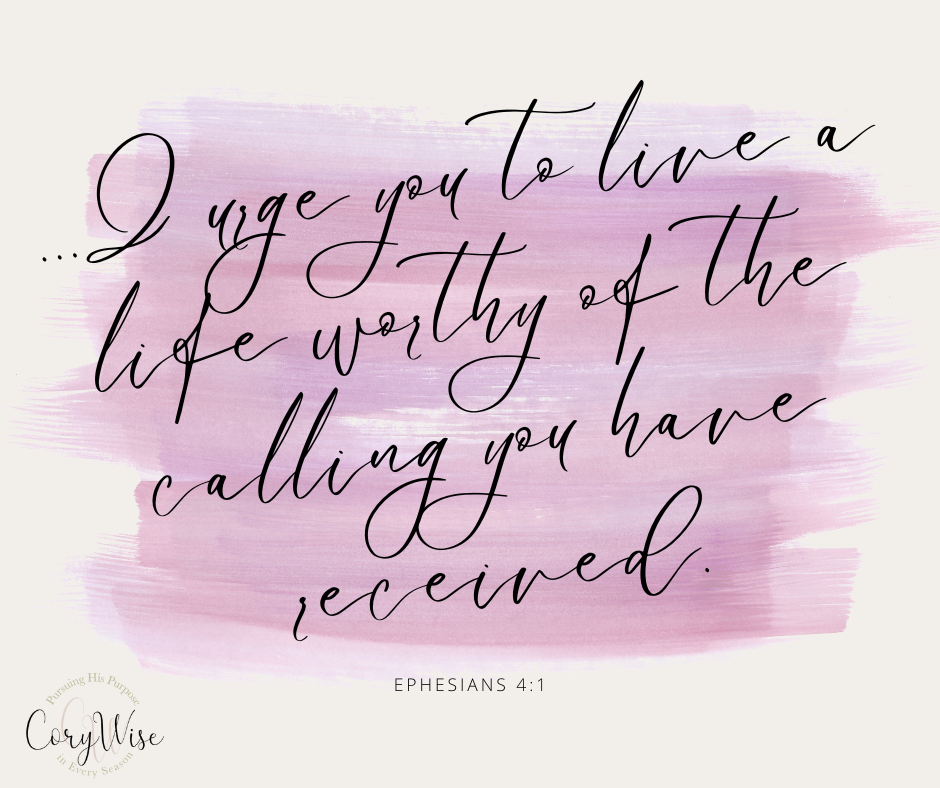 ...I urge you to live a
life worthy of the
calling you have
received.
EPHESIANS 4:1
Pursuing His Purpose
CoryWise
in Every Season